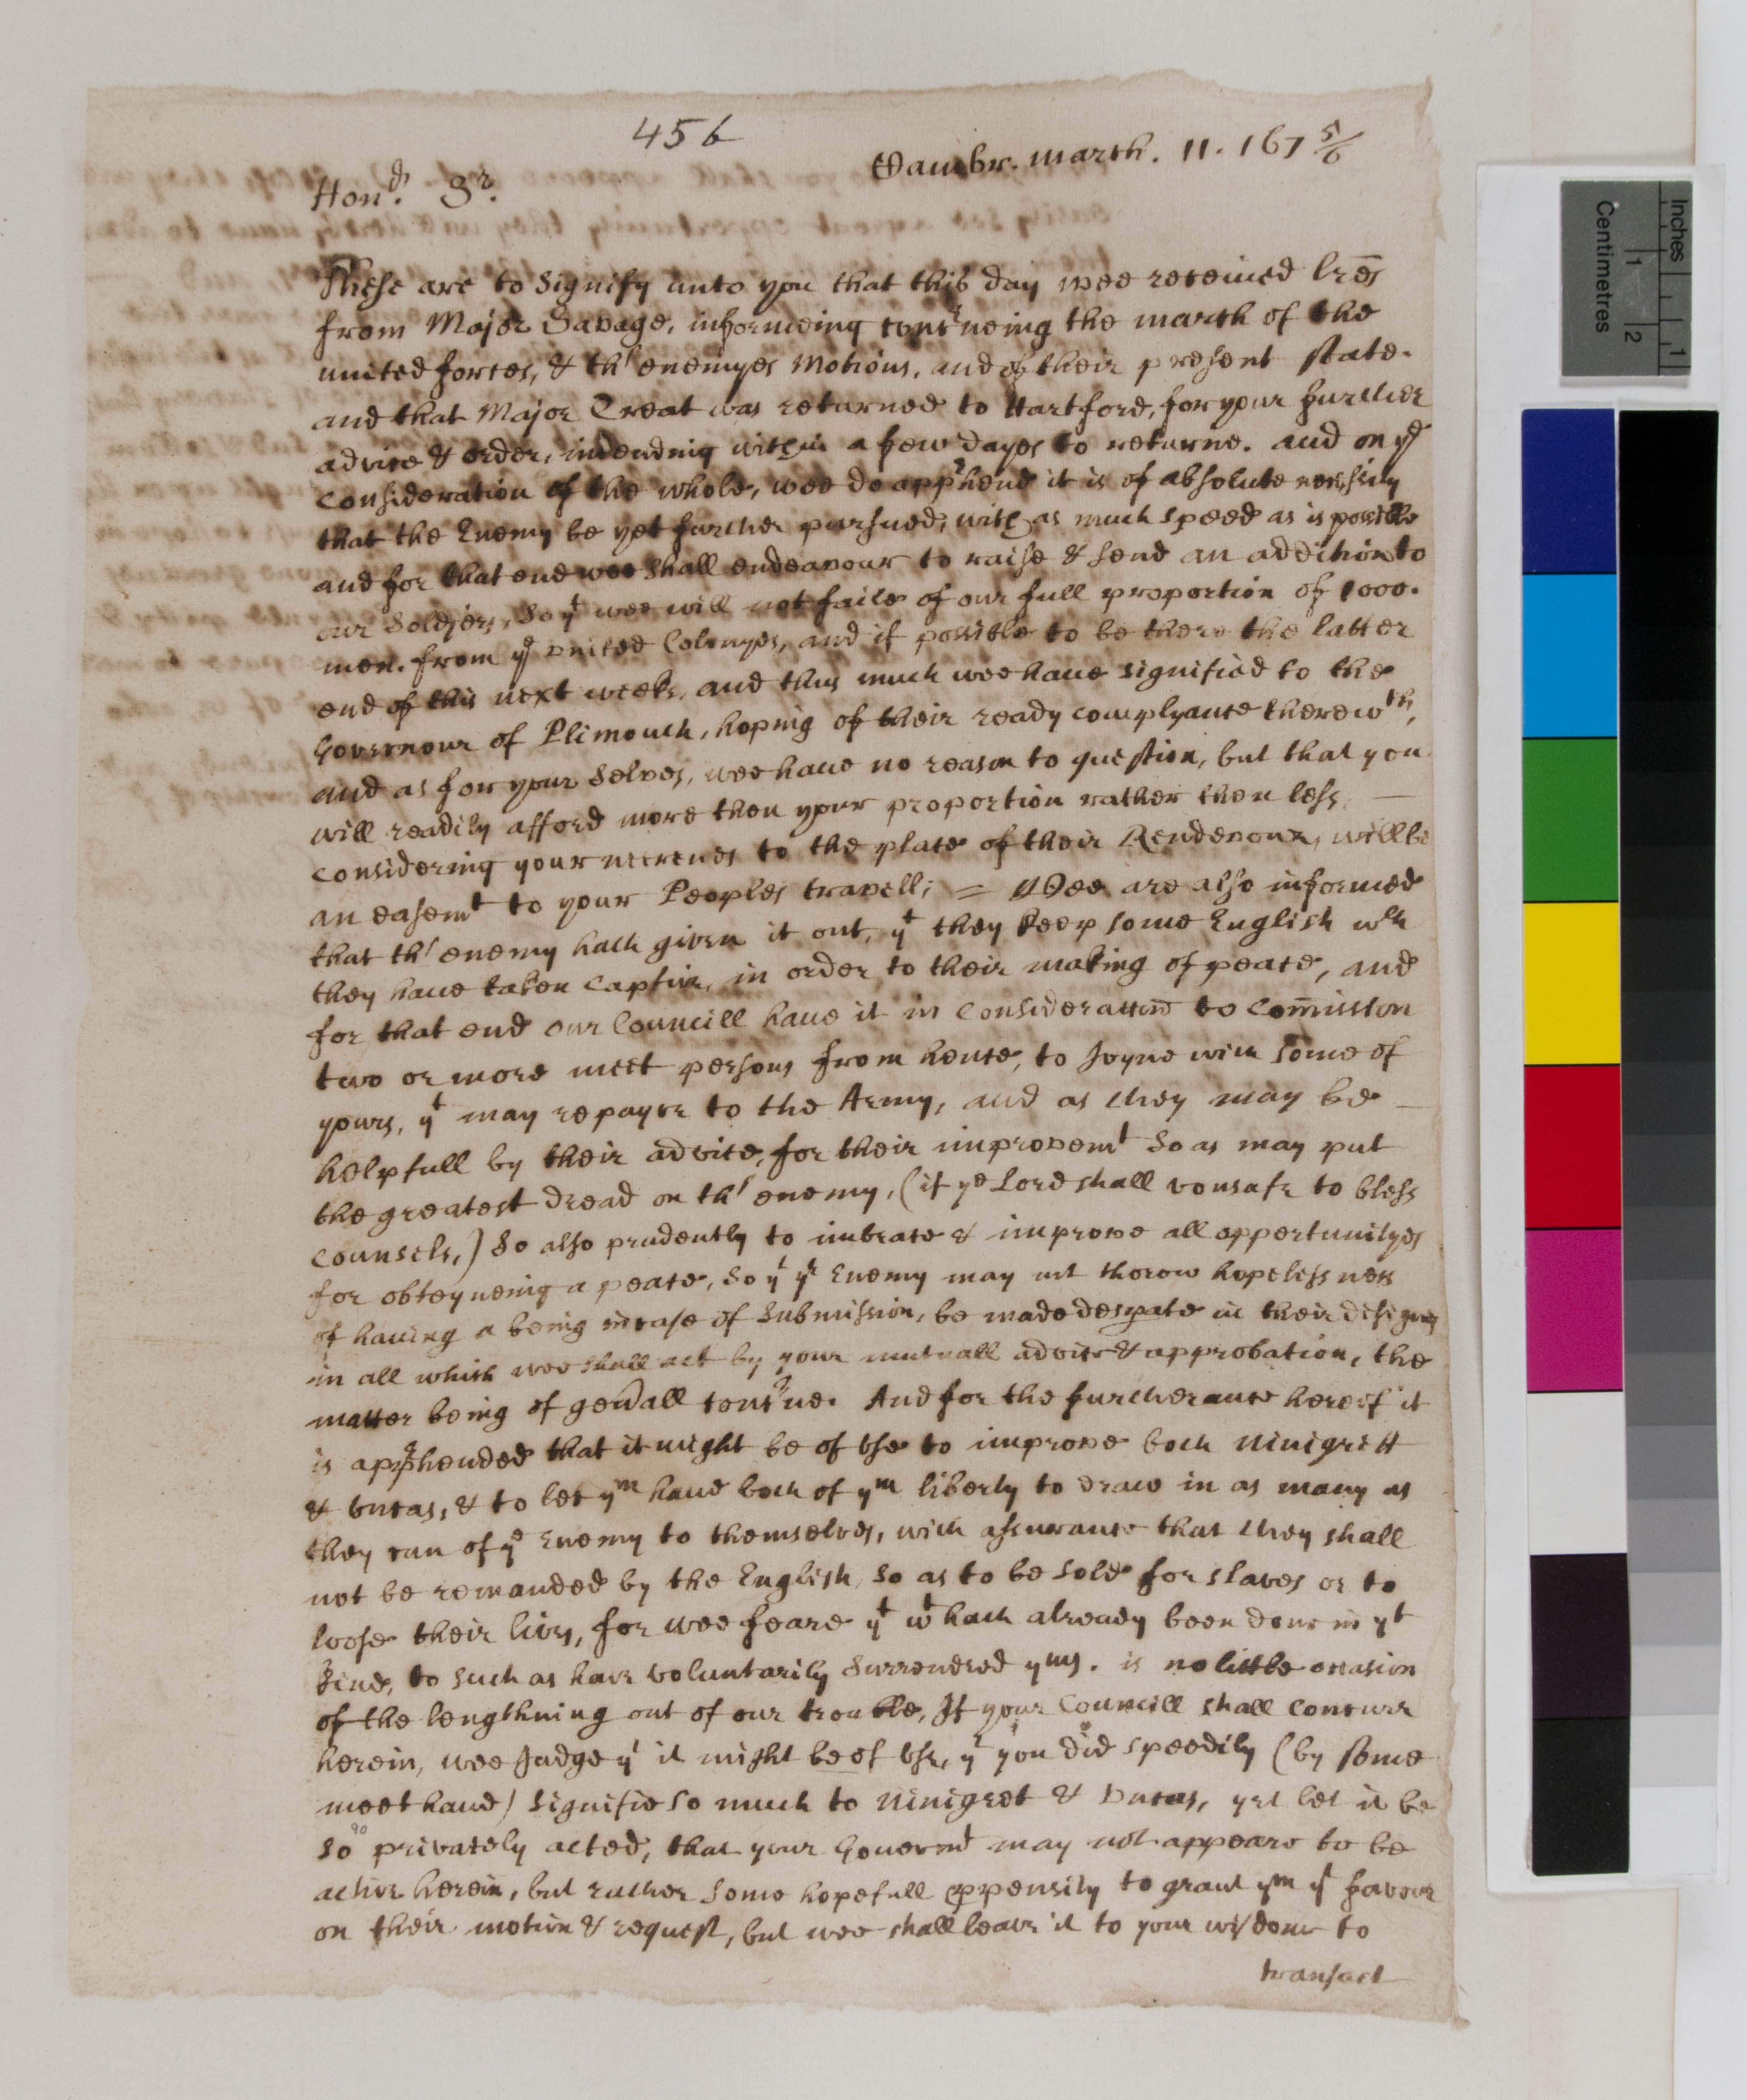 456
Cambr. march. 11. 167 5/6
Hon.d Sr.
These are to Signify unto you that this day wee received lrēs
from Major Savage, informeing concrneing the march of the
united forces, & th' enemyes Motions, and of their present state.
and that Major Treat was returned to Hartford, for your further
advice & order, intending within a few dayes to returne. and on ye
Consideration of the whole, wee do apprhend it is of absolute necessity
that the Enemy be yet further pursued, with as much speed as is possible
and for that end wee shall endeavour to raise & send an addition to
our Soldjers, So yt wee will not faile of our full proportion of 1000.
men. from ye united Colonyes, and if possible to be there the latter
end of this next weeke, and thus much wee have signified to the
Governour of Plimouth, hoping of their ready complyance therewth,
and as for your Selves, wee have no reason to question, but that you
will readily afford more then your proportion rather then less, —
considering your neerenes to the place of their Rendevouz, will be
an easemt to your Peoples travell; = Wee are also informed
that th' enemy hath given it out, yt they keep some English wch
they have taken captive, in order to their making of peace, and
for that end our Councill have it in Consideration to Com̄ission
two or more meet persons from hence, to Joyne with some of
yours, yt may repayre to the Army, and as they may be —
helpfull by their advice, for their improvemt So as may put
the greatest dread on th' enemy, (if ye Lord shall vousafe to bless
counsels,) So also prudently to imbrace & improve all opportunityes
for obteyneing a peace, So yt ye Enemy may not thorow hopelessness
of having a being in case of Submission, be made desprate in their designes
in all which wee shall act by your mutuall advice & approbation, the
matter being of gen̄all concrne. And for the furtherance hereof it
is apprhended that it might be of vse to improve both Ninigrett
& Vncas, & to let ym have both of ym liberty to draw in as many as
they can of ye Enemy to themselves, with assurance that they shall
not be remanded by the English, So as to be sold for slaves or to
loose their lives, for wee feare yt wt hath already been done in yt
kind, to such as have voluntarily Surrendred yms. is no little occasion
of the lengthning out of our trouble, If your Councill shall concurr
herein, wee Judge yt it might be of vse, yt you did speedily (by some
meet hand) signifie so much to Ninigret & Vncas, yet let it be
so privately acted, that your Govermt may not appeare to be
active herein, but rather some hopefull ppensity to graunt ym yt favour
on their motion & request, but wee shall leave it to your wisdome to
transact
Inches
Centimetres
1
2
1